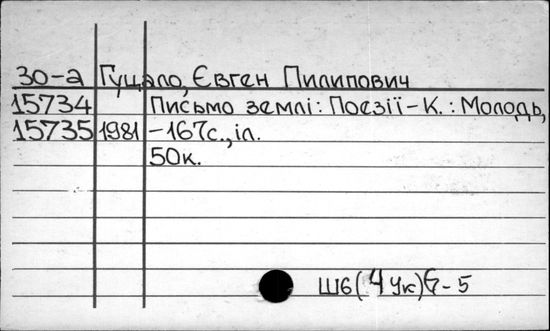 30-а Гуцало, Євген Пилипович
15734 Письмо землі: Поезії - К.: Молодь,
15735 1981 -167с., іл.
50к.
Ш6(4Ук)6-5